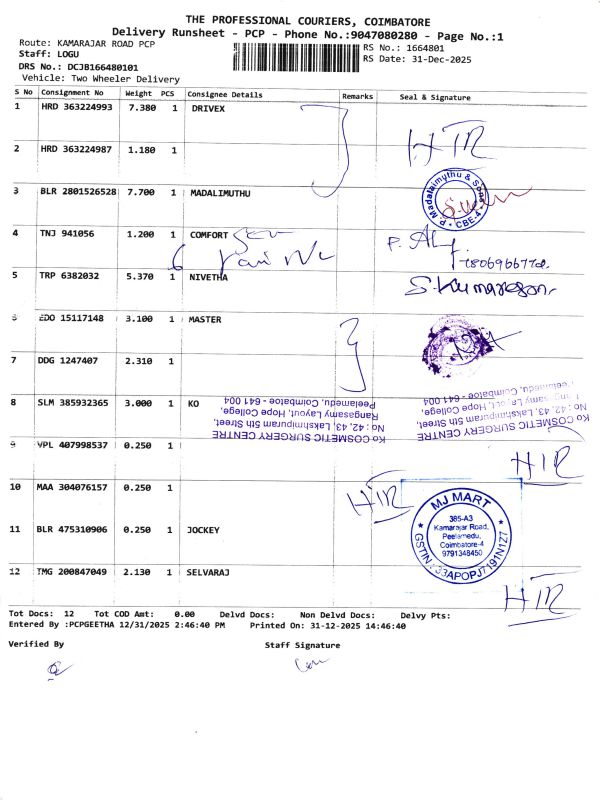 THE PROFESSIONAL COURIERS, COIMBATORE
Delivery Runsheet - PCP - Phone No.:9047080280 - Page No.:1
Route: KAMARAJAR ROAD PCP
RS No.: 1664801
Staff: LOGU
RS Date: 31-Dec-2025
DRS No.: DCJB166480101
Vehicle: Two Wheeler Delivery
S No Consignment No Weight PCS Consignee Details Remarks Seal & Signature
1 HRD 363224993 7.380 1 DRIVEX
2 HRD 363224987 1.180 1
HIR
3 BLR 2801526528 7.700 1 MADALIMUTHU
Madalaimuthu & Sons
CBE-4
4 TNJ 941056 1.200 1 COMFORT
5 TRP 6382032 5.370 1 NIVETHA
S. Kumaresan
6 EDO 15117148 3.100 1 MASTER
7 DDG 1247407 2.310 1
8 SLM 385932365 3.000 1 KO
Ko COSMETIC SURGERY CENTRE
No : 42, 43, Lakshmipuram 5th Street,
Rangasamy Layout, Hope College,
Peelamedu, Coimbatore - 641 004
Ko COSMETIC SURGERY CENTRE
No : 42, 43, Lakshmipuram 5th Street,
Hope College,
Peelamedu, Coimbatore - 641 004
9 VPL 407998537 0.250 1
HIR
10 MAA 304076157 0.250 1
HIR
11 BLR 475310906 0.250 1 JOCKEY
MJ MART
385-A3
Kamarajar Road,
Peelamedu,
Coimbatore-4
9791348450
GSTIN : 33APOPJ7191N1Z7
12 TMG 200847049 2.130 1 SELVARAJ
HIR
Tot Docs: 12 Tot COD Amt: 0.00 Delvd Docs: Non Delvd Docs: Delvy Pts:
Entered By :PCPGEETHA 12/31/2025 2:46:40 PM Printed On: 31-12-2025 14:46:40
Verified By Staff Signature